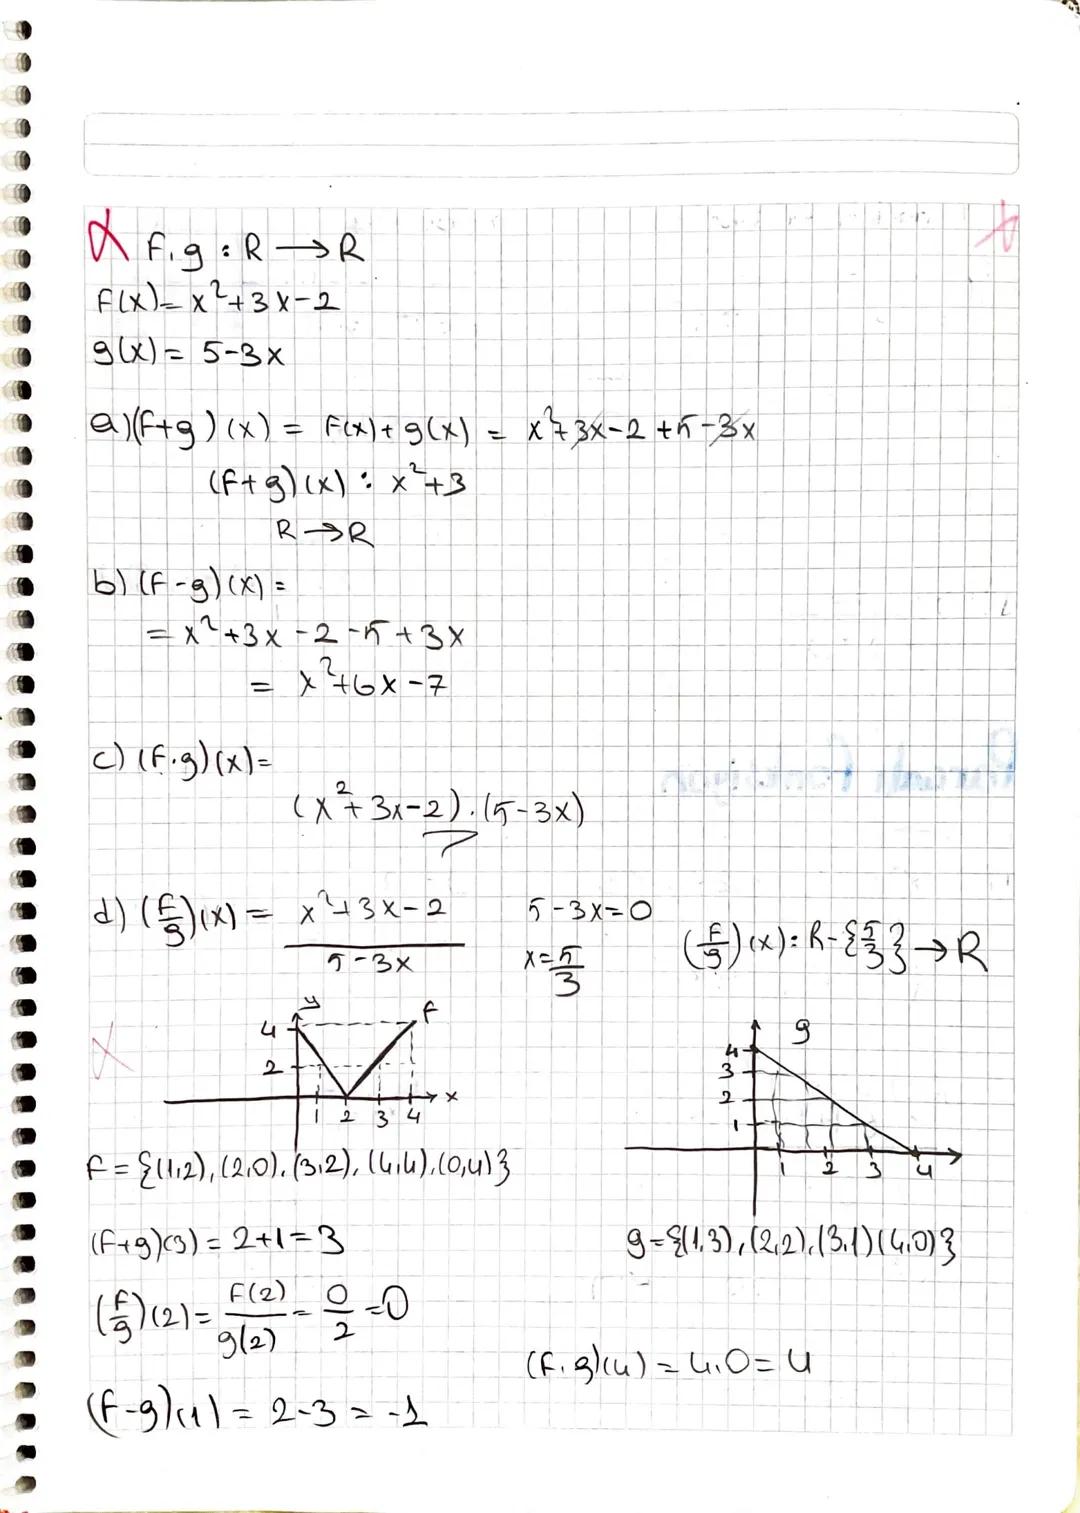 α f,g : R → R
f(x) = x²+3x-2
g(x) = 5-3x
a) (f+g)(x) = f(x)+g(x) = x²+3x-2+5-3x
(f+g)(x) : x²+3
R → R
b) (f-g)(x) =
= x²+3x-2-5+3x
= x²+6x-7
c) (f.g)(x) =
(x²+3x-2).(5-3x)
d) (f/g)(x) = x²+3x-2 / 5-3x
5-3x=0
x=5/3
(f/g)(x) : R-{5/3} → R
α
y
f
4
2
x
1 2 3 4
g
4
3
2
1
1 2 3 4
f = {(1,2), (2,0), (3,2), (4,4), (0,4)}
g = {(1,3), (2,2), (3,1) (4,0)}
(f+g)(3) = 2+1 = 3
(f/g)(2) = f(2)/g(2) = 0/2 = 0
(f.g)(4) = 4.0 = 4
(f-g)(1) = 2-3 = -1